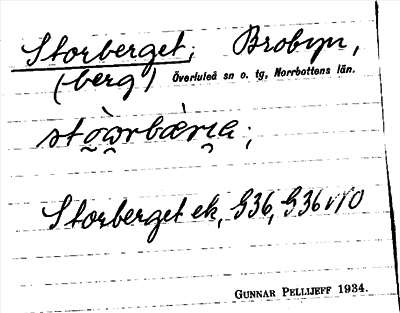 Storberget; Brobyn,
(berg) Överluleå sn o. tg, Norrbottens län.
Storberget ek, G36, G36 NO
GUNNAR PELLIJEFF 1934.